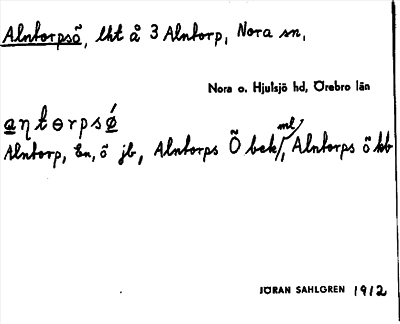 Alntorpsö, lht å 3 Alntorp, Nora sn,
Nora o. Hjulsjö hd, Örebro län
a̲ŋtɵrpsǿ̲
Alntorp, En, ö jb, Alntorps Ö bek/, ml Alntorps ö kb
JÖRAN SAHLGREN 1912